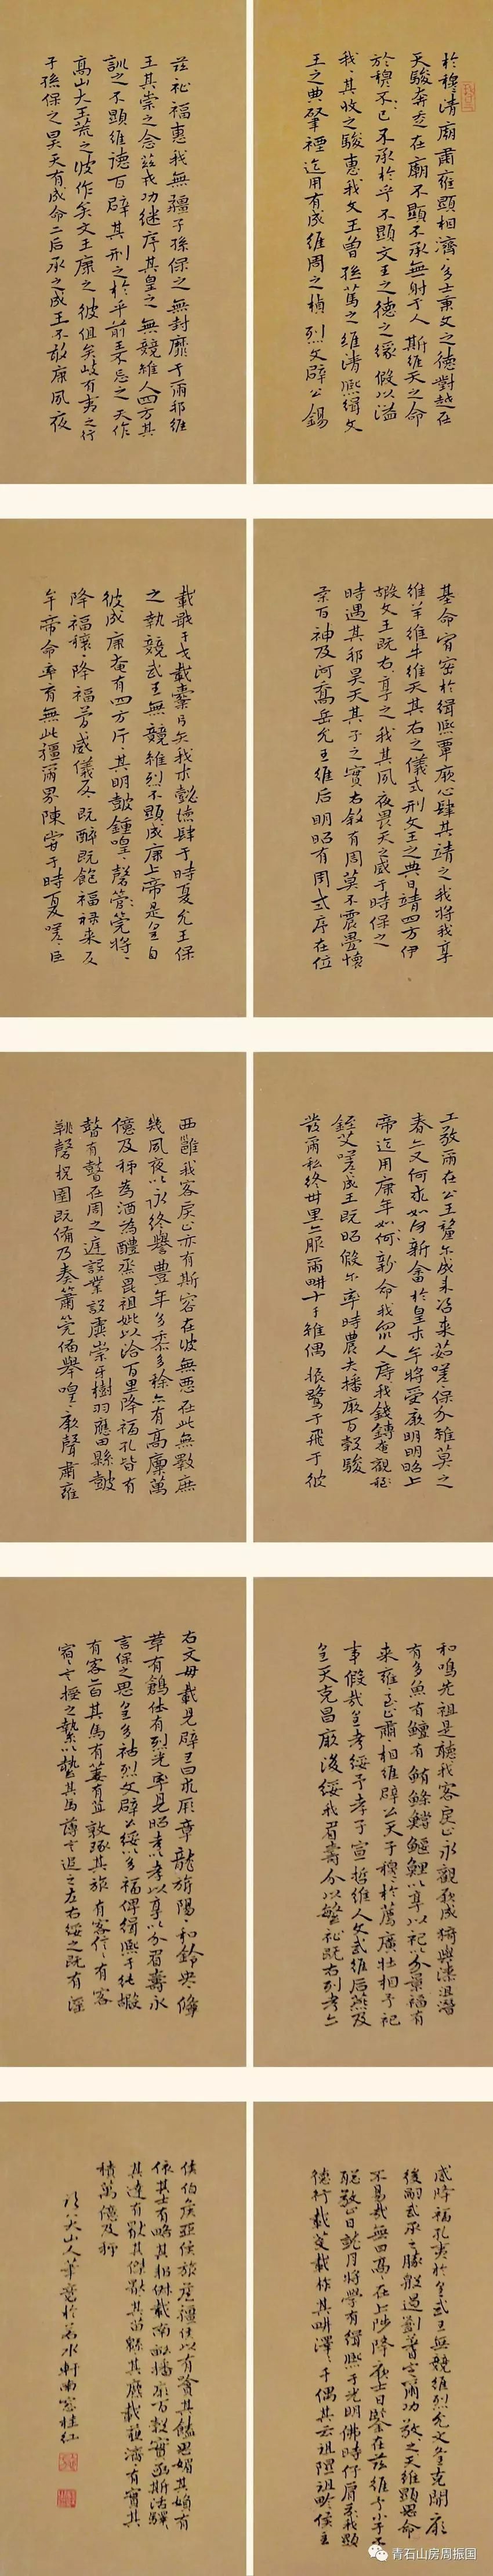 於穆清廟肅雍顯相濟〻多士秉文之德對越在
天駿奔走在廟不顯不承無射于人斯維天之命
於穆不已不承於乎不顯文王之德之緣假以溢
我〻其收之駿惠我文王曾孫篤之維清熙緝文
王之典肇禋迄用有成維周之楨烈文辟公錫
茲祉福惠我無疆子孫保之無封靡于爾邦維
王其崇之念茲戎功继序其皇之無競維人四方其
訓之不顯維德百辟其刑之於乎前王不忘之天作
高山大王荒之彼作矣文王康之彼徂矣岐有夷之行
子孫保之昊天有成命二后承之成王不敢康夙夜
基命宥密於緝熙單厥心肆其靖之我將我享
維羊維牛維天其右之儀式刑文王之典日靖四方伊
嘏文王既右享之我其夙夜畏天之威于時保之
時邁其邦昊天其子之實右敘有周莫不震疊懷
柔百神及河喬岳允王維后明昭有周式序在位
載戢干戈載櫜弓矢我求懿德肆于時夏允王保
之執競武王無競維烈不顯成康上帝是皇自
彼成康奄有四方斤〻其明鼓鍾喤〻磬筦將〻
降福穰〻降福簡威儀反〻既醉既飽福祿来反
牟帝命率育無此疆爾界陳常于時夏嗟〻臣
工敬爾在公王釐尔成来咨来茹嗟〻保介維莫之
春亦又何求如何新畬於皇来牟將受厥明明昭上
帝迄用康年如何新命我眾人庤我錢鎛奄觀銍
銍艾嗟成王既昭假尔率時農夫播厥百穀駿
發爾私終卅里亦服爾畊十千維偶振鷺于飛于彼
西雝我客戾止亦有斯容在彼無惡在此無斁庶
幾夙夜以永終譽豊年多黍多稌亦有高廩萬
億及秭為酒為醴烝畀祖妣以洽百里降福孔皆有
瞽有瞽在周之庭設業設虡崇牙樹羽應田縣鼓
鞉磬柷圉既備乃奏簫筦備舉喤〻厥聲肅雍
和鳴先祖是聽我客戾止永觀厥成猗與漆沮潛
有多魚有鱣有鮪鰷鱨鰋鯉以享以祀以介景福有
来雍〻至止肅〻相維辟公天子穆〻於薦廣牡相予祀
事假哉皇考綏予孝子宣哲維人文武維后燕及
皇天克昌厥後綏我眉壽介以繁祉既右烈考亦
右文母載見辟王曰求厥章龍旂陽〻和鈴央〻鞗
革有鶬休有烈光率見昭考以孝以享以介眉壽永
言保之思皇多祜烈文辟公綏以多福俾緝熙于純嘏
有客〻亦白其馬有萋有苴敦琢其旅有客信〻有客
宿〻言授之縶以縶其馬薄言追之左右綏之既有淫
威降福孔夷於皇武王無競維烈允文皇克開厥
後嗣武承之勝殷遏劉耆定爾功敬之天維顯思命
不易哉無曰高〻在上陟降厥士日鑒在茲維予小子不
聰敬止日就月將學有緝熙于光明佛時仔肩示我顯
德行載芟載柞其畊澤〻千偶其耘徂隰徂畛侯主
侯伯侯亞侯旅侯彊侯以有嗿其饁思媚其婦有
依其士有略其耜俶載南畝播厥百穀實函斯活驛〻
其達有厭其傑厭〻其苗緜〻其麃載穫濟〻有實其
積萬億及秭
八大山人筆意於若水軒南窗桂紅
青石山房周振国